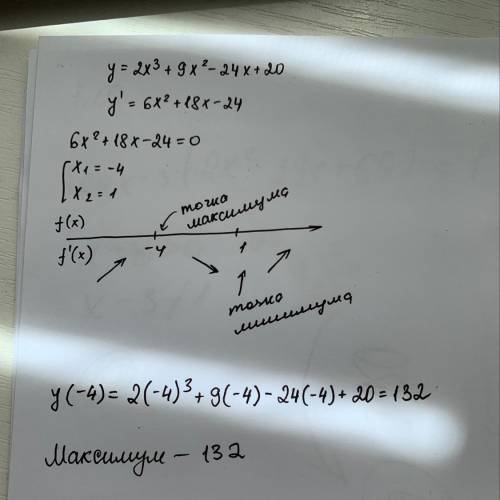 y = 2x³ + 9x² - 24x + 20
y' = 6x² + 18x - 24
6x² + 18x - 24 = 0
x₁ = -4
x₂ = 1
точка
максимума
f(x)
f'(x)
-4
1
точка
минимума
y(-4) = 2(-4)³ + 9(-4) - 24(-4) + 20 = 132
Максимум - 132